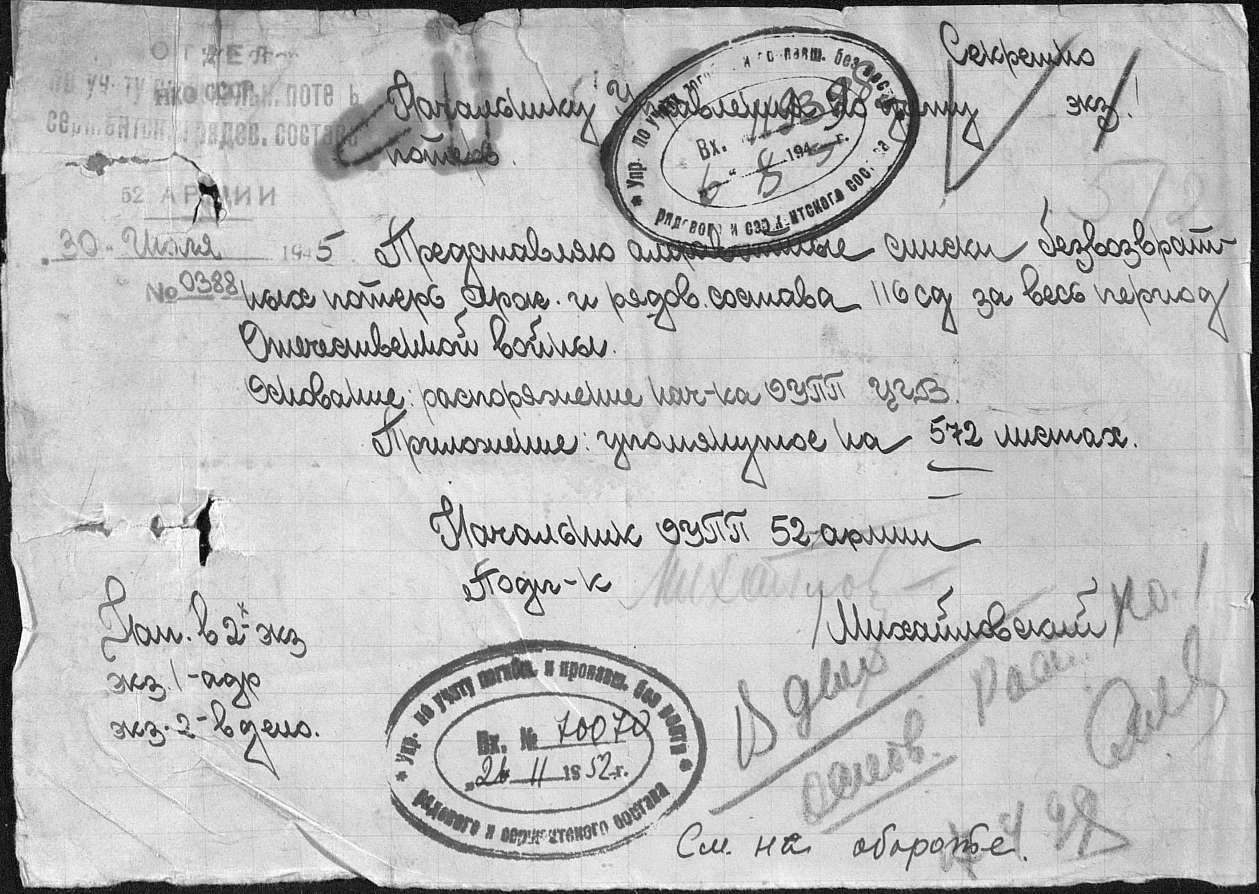 Секретно
экз. 1
ОТДЕЛ
НКО СССР
52 АРМИИ
30 Июля 1945
№ 0388
Начальнику Управления по учету
потерь.
Упр. по учету погибш. и пропавш. без вести
рядового и сержантского состава
Вх.
6 8 1945 г.
572
Представляю алфавитные списки безвозврат-
ных потерь серж. и рядов. состава 116 сд за весь период
Отечественной войны.
Основание: распоряжение нач-ка ОУПП ЦГВ.
Приложение: упомянутое на 572 листах.
Начальник ОУПП 52 армии
Подп-к
/Михайловский/
Нап. в 2-х экз
экз. 1-адр
экз. 2-в дело.
Упр. по учету погибш. и пропавш. без вести
рядового и сержантского состава
Вх. № 70070
"26" 11 1952 г.
В двух
См. на обороте.